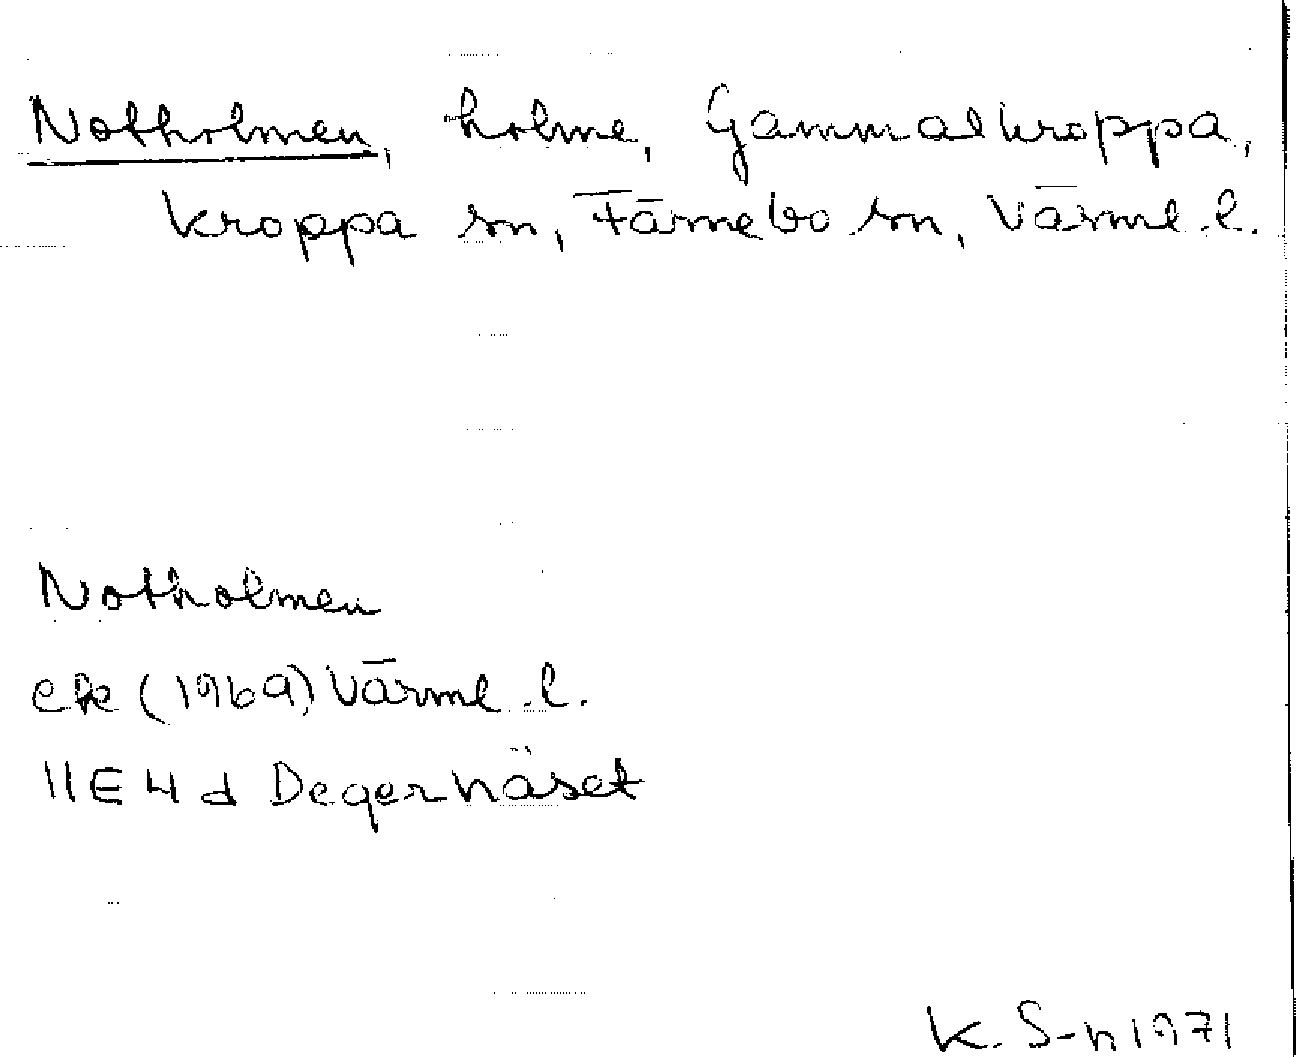 Notholmen, holme, Gammalkroppa,
Kroppa sn, Färnebo sn, Värml. l.
Notholmen
ek (1969) Värml. l.
11E 4d Degernäset
K. S-n 1971